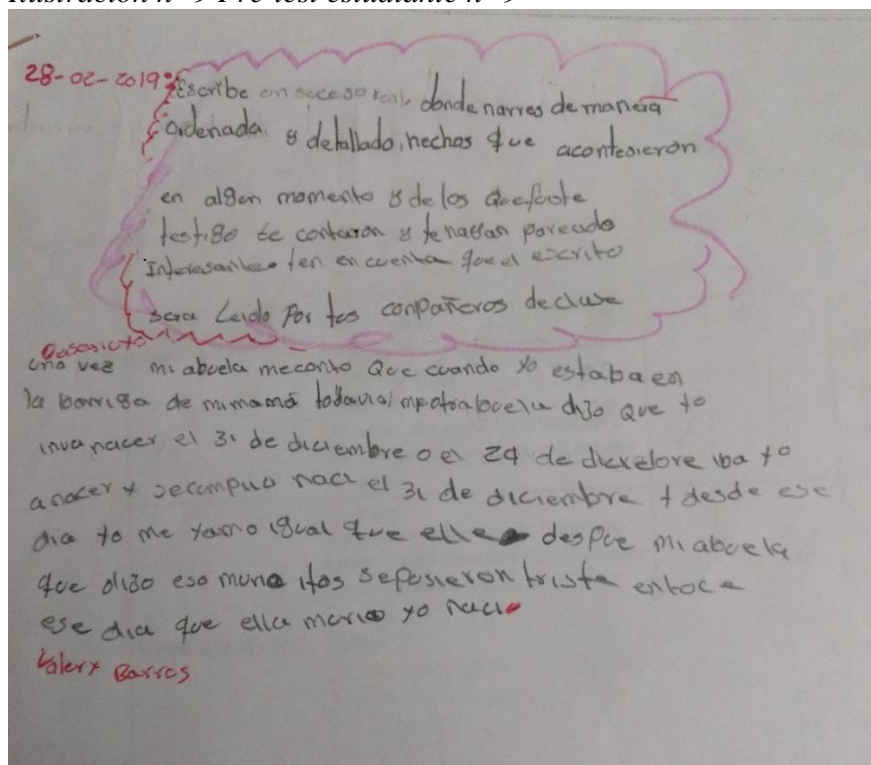 28-02-2019: Escribe un suceso real, donde narres de manera
ordenada y detallado, hechos que acontesieron
en algen momento y de los que fuiste
testigo te contaron y te hallan parecido
Interesante ten en cuenta que el escrito
sera Leido Por tus conpañeros de clase
Desarrollo
una vez mi abuela me conto Que cuando yo estaba en
la barriga de mi mamá todavia mi otra abuela dijo Que yo
inva nacer el 31 de diciembre o el 24 de diciembre iba yo
a nacer y se cumplio naci el 31 de diciembre y desde ese
dia yo me yamo igual que ella despue mi abuela
que dijo eso muno itos se pusieron triste entoce
ese dia que ella murio yo naci
Valery Barros